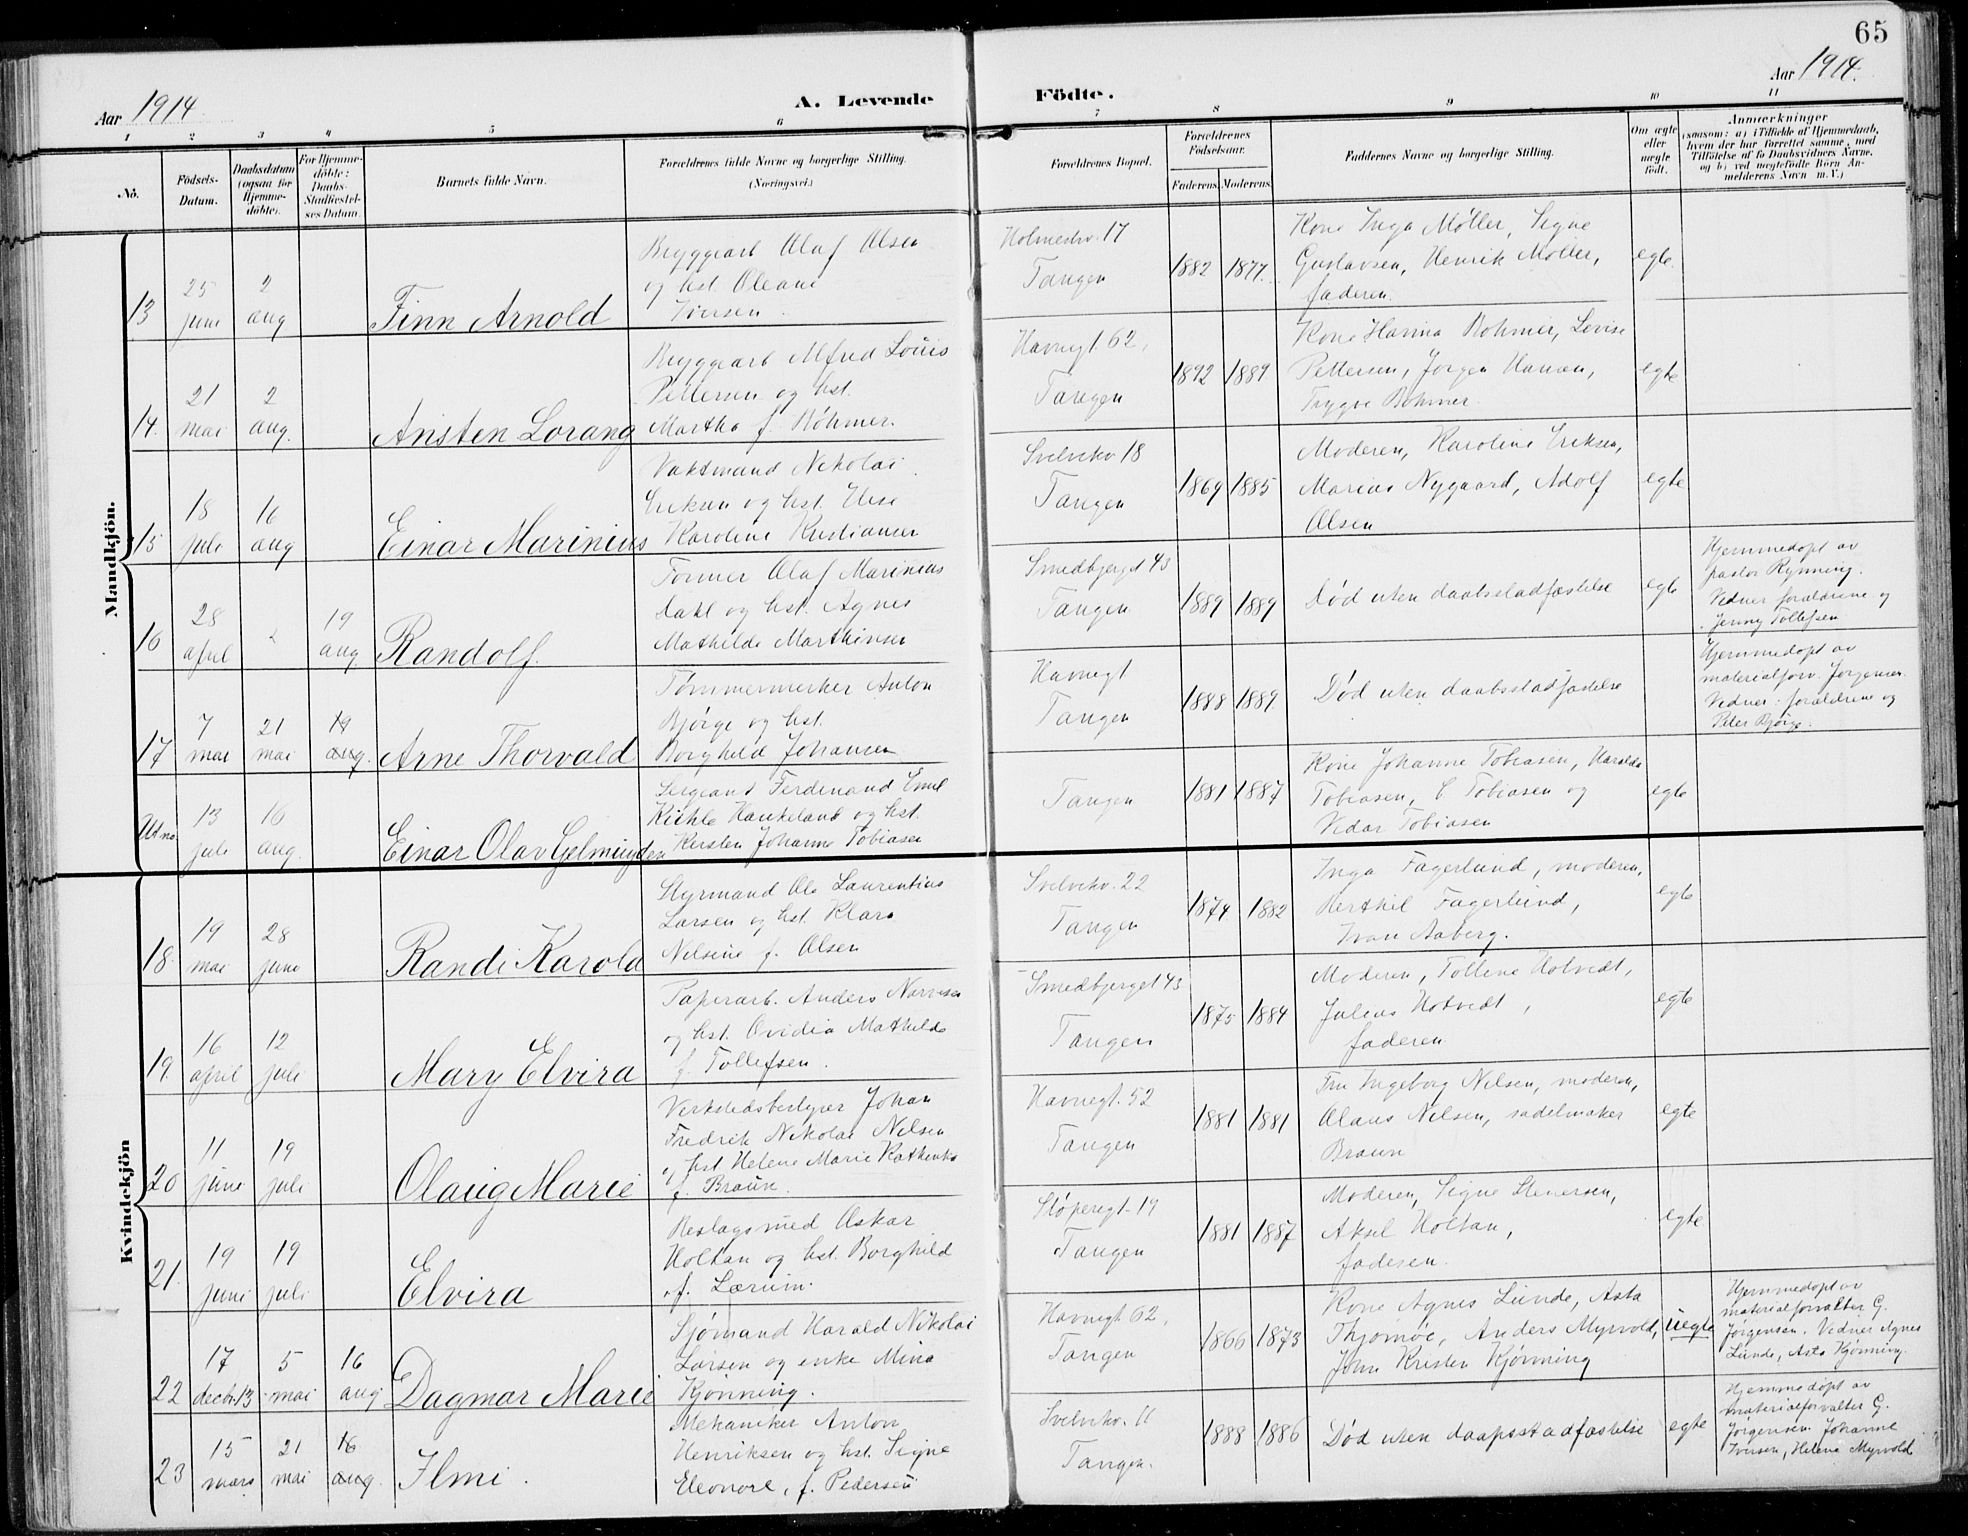 65
Aar 1914. A. Levende Födte. Aar 1914.
1 2 3 4 5 6 7 8 9 10 11
No.
Födsels-
Datum.
Daabsdatum
(ogsaa for
Hjemme-
døbte).
For Hjemme-
döbte:
Daabs-
Stadfæstel-
ses Datum.
Barnets fulde Navn.
Forældrenes fulde Navne og borgerlige Stilling.
(Næringsvei.)
Forældrenes Bopæl.
Forældrenes
Födselsaar.
Faderens. Moderens.
Faddernes Navne og borgerlige Stilling.
Om ægte
eller
uægte
födt.
Anmærkninger
(saasom: a) i Tilfælde af Hjemmedaab,
hvem der har forrettet samme, med
Tilföielse af to Daabsvidners Navne,
og b) ved uægtefödte Börn An-
melderens Navn m. V.)
Mandkjön.
13 25 juni 2 aug Finn Arnold
Bryggearb Olaf Olsen
og hst. Oleane
Iversen.
Holmestrv. 17
Tangen
1882 1877.
Kone Inga Møller, Signe
Gustavsen, Henrik Møller,
faderen.
egte.
14. 21 mai 2 aug. Ansten Lorang
Bryggearb Alfred Louis
Pettersen og hst.
Martha f. Bøhmer.
Havnegt 62,
Tangen
1892 1889
Kone Hanna Bohmer, Lovise
Pettersen, Jørgen Hansen,
Trygve Bohmer.
egte
15 18 juli 16 aug Einar Marinius
Vaktmand Nikolai
Eriksen og hst. Else
Karoline Kristiansen
Svelvikv 18
Tangen
1869 1885
Moderen, Karoline Eriksen,
Marius Nygaard, Adolf
Olsen
egte
16 28 april 19 aug Randolf.
Former Olaf Marinius
Dahl og hst. Agnes
Mathilde Marthinsen
Smedbjerget 43
Tangen
1889 1889
Død uten daabsstadfæstelse
egte
Hjemmedøpt av
pastor Rynning.
Vedner foraldrene og
Jenny Tollefsen
17 7 mai 21 mai 19 aug. Arne Thorvald
Tømmermerker Anton
Bjørge og hst.
Borghild Johansen
Havnegt
Tangen
1888 1889
Død uten daabsstadfæstelse
Hjemmedøpt av
materialforv. Jørgensen.
Vedner: foraldrene og
Peter Bjørge.
Utno 13 juli 16 aug. Einar Olav Gelmuyden
Sergeant Ferdinand Emil
Kiehle Haukeland og hst.
Kirsten Johanne Tobiasen
Tangen
1881 1887
Kone Johanne Tobiasen, Haralda
Tobiasen, C Tobiasen og
Vidar Tobiasen
egte
Kvindekjön
18. 19 mai 28 juni Randi Karola
Styrmand Ole Laurentius
Larsen og hst. Klara
Nilsine f. Olsen
Svelvikv. 22
Tangen
1874 1882
Inga Fagerlund, moderen,
Berthil Fagerlund,
Ivan Aaberg.
egte
19. 16 april 12 juli Mary Elvira
Paperarb. Anders Narvesen
og hst. Ovidia Mathilde
f. Tollefsen.
Smedbjerget 43
Tangen
1875 1884
Moderen, Tolline Hotvedt,
Julius Hotvedt,
faderen
egte
20 11 juni 19 juli Olaug Marie
Verkstedsbestyrer Johan
Fredrik Nikolai Nilsen
og hst Helene Marie
f. Braun.
Havnegt. 52
Tangen
1881 1881
Fru Ingeborg Nilsen, moderen,
Olaus Nilsen, sadelmaker
Braun
egte
21. 19 juni 19 juli Elvira
Beslagsmed Oskar
Holtan og hst. Borghild
f. Lærum.
Støperegt. 19
Tangen
1881 1887
Moderen, Signe Stenersen,
Aksel Holtan,
faderen.
egte
22 17 decbr. 13 5 mai 16 aug Dagmar Marie
Sjømand Harald Nikolai
Larsen og enke Mina
Kjønning.
Havnegt 62,
Tangen
1866 1873
Kone Agnes Lunde, Asta
Thjømøe, Anders Myrvold,
John Kristen Kjønning
uegte
Hjemmedøpt av
materialforvalter G.
Jørgensen. Vedner Agnes
Lunde, Asta Kjønning.
23 15 mars 21 mai 16 aug. Ilmi.
Mekaniker Anton
Henriksen og hst. Signe
Eleonore, f. Pedersen
Svelvikv. 11
Tangen.
1888 1886
Død uten daapsstadfæstelse
egte
Hjemmedøpt av
materialforvalter G.
Jørgensen. Johanne
Iversen, Helene Myrvold